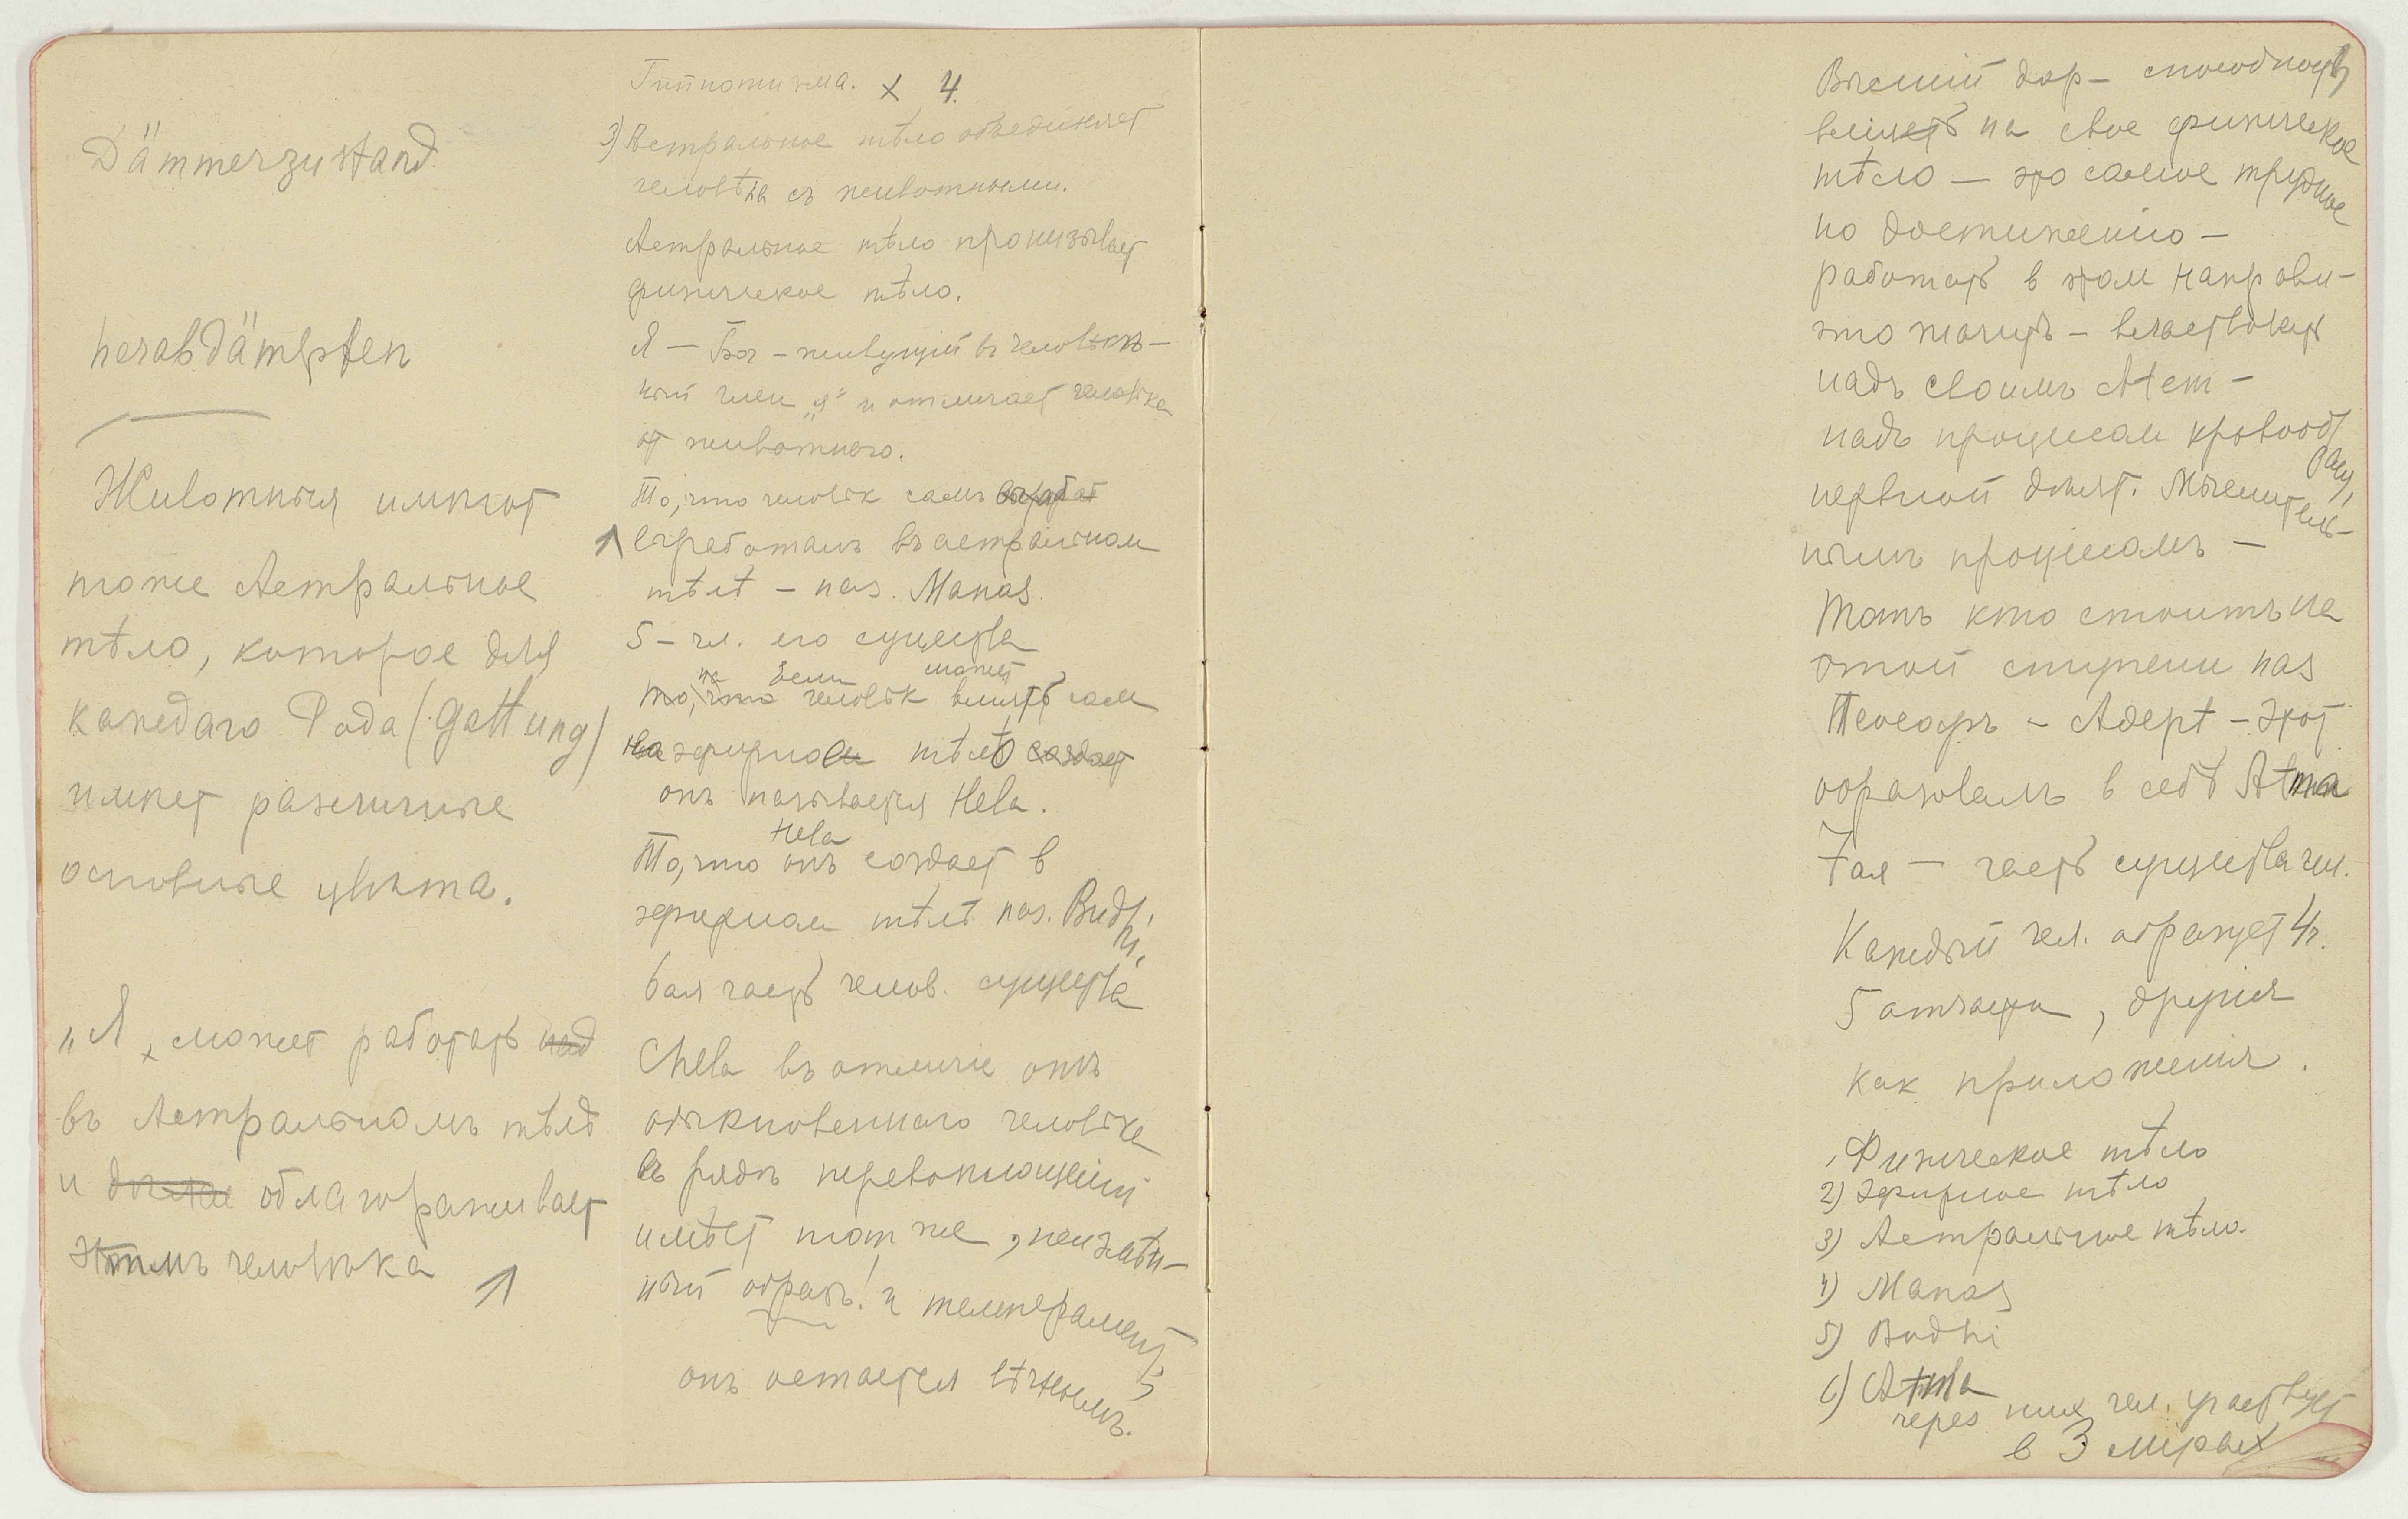 Dämmerzustand
herabdämpfen
Животныя имѣют
тоже Астральное
тѣло, которое для
каждаго Рода (Gattung)
имѣет различные
основные цвѣта.
„Я, может работать над
въ Астральномъ тѣлѣ
и облагораживает
этимъ человѣка 1
Гипнотизма. x 4.
3) Астральное тѣло объединяет
человѣка съ животными.
Астральное тѣло пронизывает
физическое тѣло.
Я — Бог — живущий въ человѣкѣ —
ный член „я“ и отличает человѣка
от животнаго.
То, что человѣк самъ выработ
1 выработалъ въ астральном
тѣлѣ — наз. Manas.
5 — чл. его существа
на Если может
то, что человѣк влиять сам
на эфирное тѣло создает
онъ называется Hela.
Hela
То, что онъ создает в
эфирном тѣлѣ наз. Budhi,
6ая часть челов. существа
Chela въ отличіе отъ
обыкновеннаго человѣка
въ рядѣ перевоплощений
имѣет тот же, неизмѣн-
ный образъ! и темперамент,
онъ остается вѣчнымъ.
Высший дар — способность
влиять на свое физическое
тѣло — это самое трудное
по достижению —
работать в этом направл-
это значитъ — властвовать
надъ своимъ Atem —
надъ процессом кровообращ,
нервной дѣят. Мыслитель-
нымъ процессамъ —
Тотъ кто стоитъ на
этой ступени наз
— Adept — этот
образовалъ в себѣ Atma
7ая — часть существа чел.
Каждый чел. образует 4ч.
5 отчасти, другия
как приложения.
1, Физическое тѣло
2) Эфирное тѣло
3) Астральное тѣло.
4) Manas
5) Budhi
6) Atma
через них чел. участвует
в 3 мірах